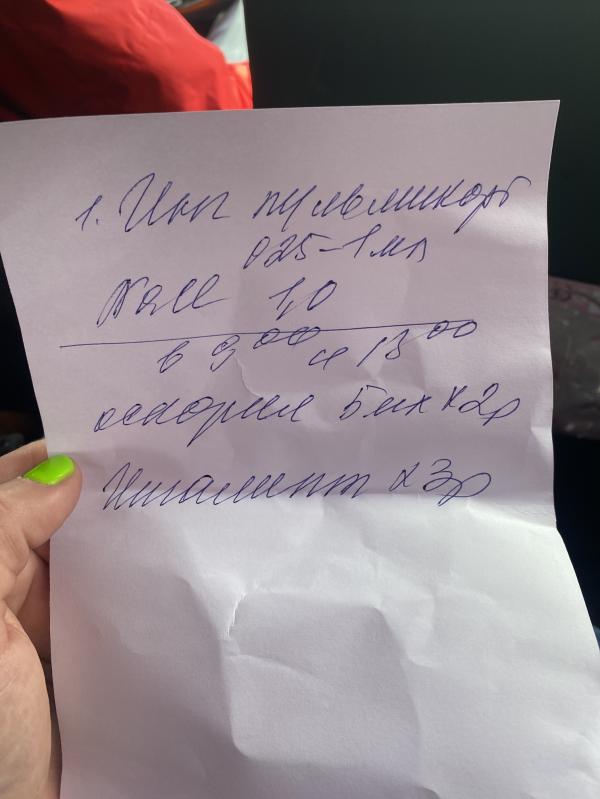 1. Инг пульмикорт
025-1мл
NaCl 1,0
в 9⁰⁰ и 13⁰⁰
аскорил 5мл х 2р
Ингалипт х 3р